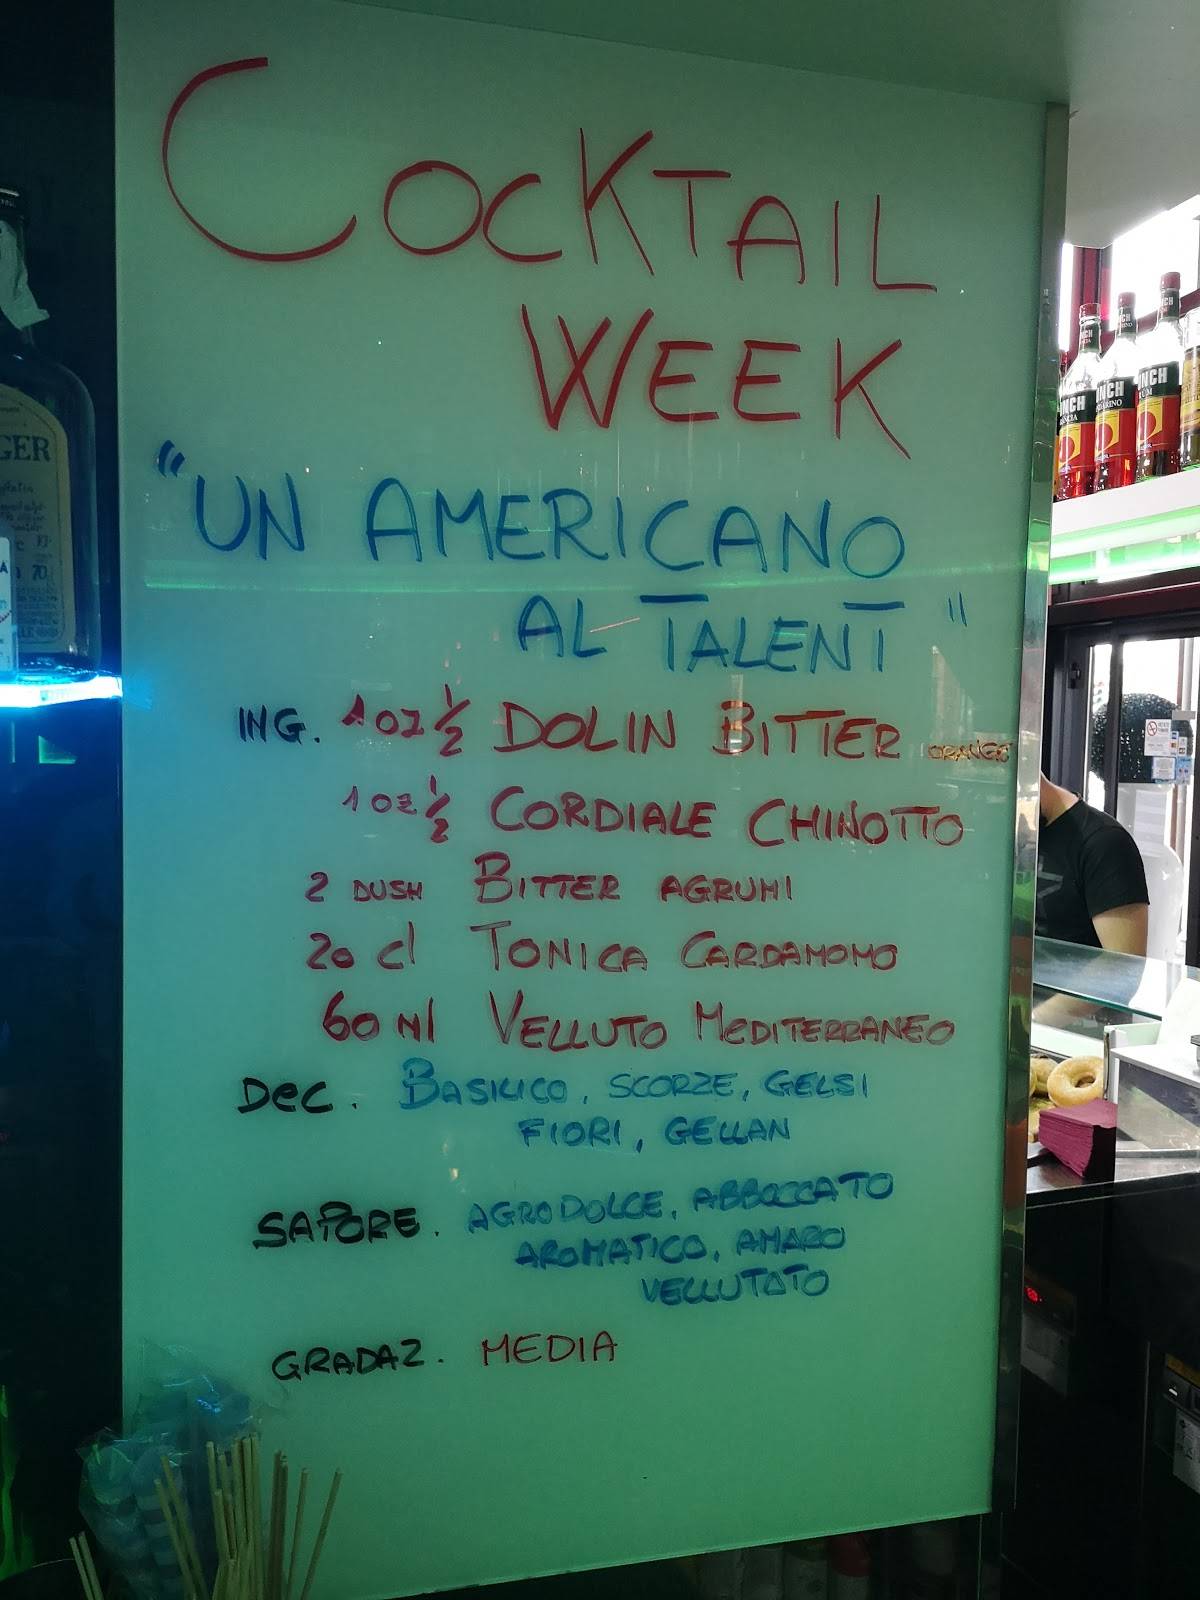 COCKTAIL
WEEK
"UN AMERICANO
AL TALENT"
ING. 1 OZ ½ DOLIN BITTER ORANGE
1 OZ ½ CORDIALE CHINOTTO
2 DUSH BITTER AGRUMI
20 cl TONICA CARDAMOMO
60 ml VELLUTO MEDITERRANEO
DEC. BASILICO, SCORZE, GELSI
FIORI, GELLAN
SAPORE. AGRODOLCE, ABBOCCATO
AROMATICO, AMARO
VELLUTATO
GRADAZ. MEDIA
GER
70